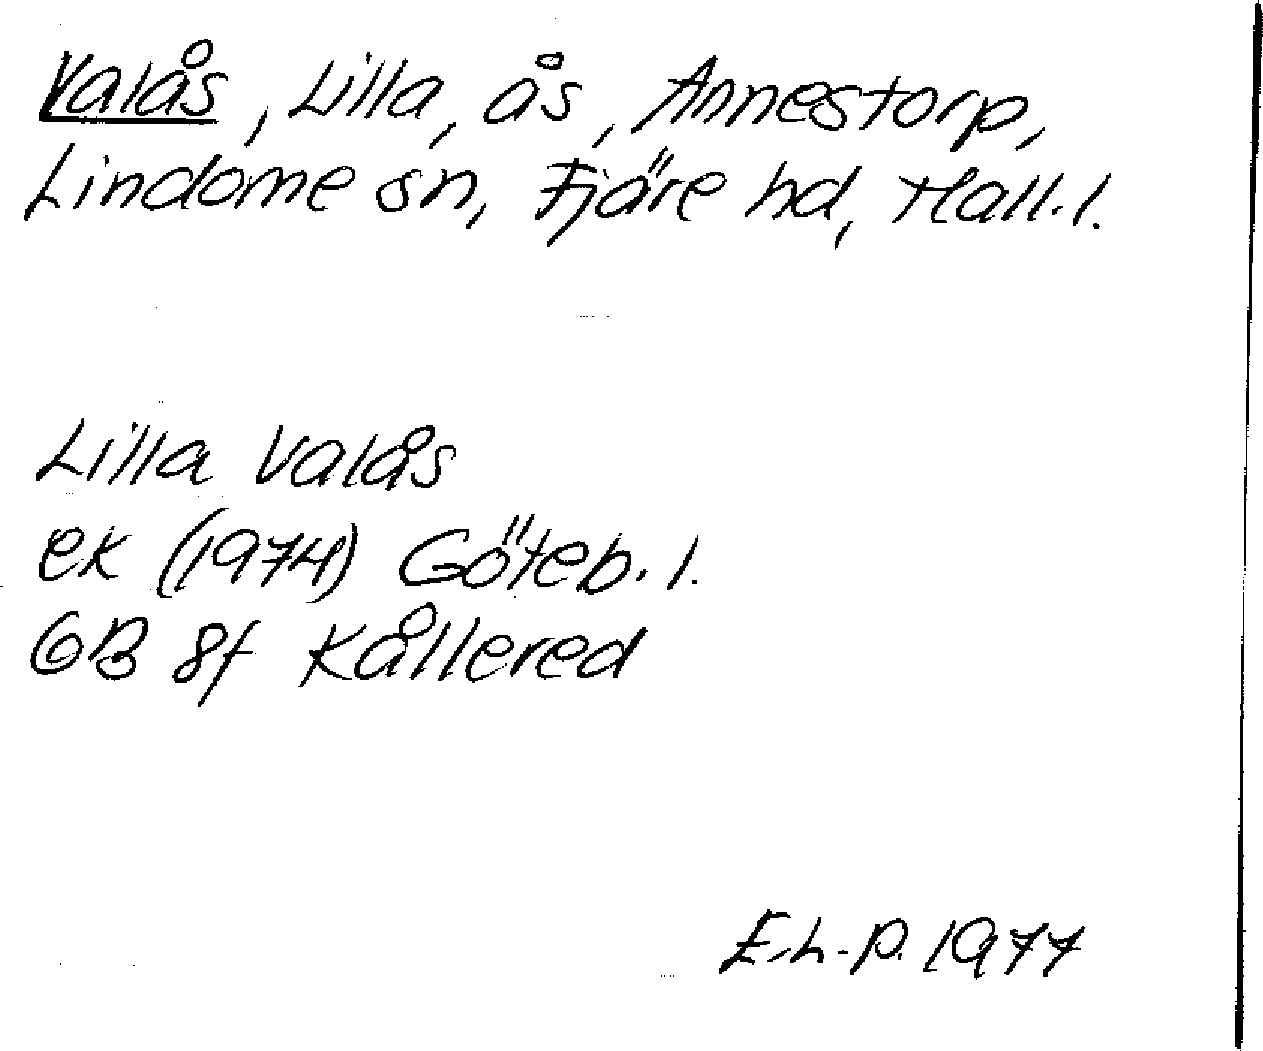 Valås, Lilla, ås, Annestorp,
Lindome sn, Fjäre hd, Hall.l.
Lilla Valås
ek (1974) Göteb.l.
GB 8f Kållered
E.L-P. 1977